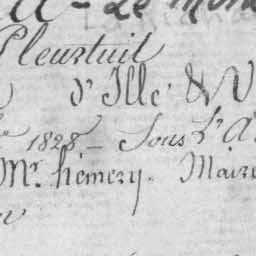 Pleurtuit
d'Ille & V
1828 – Sous L'A
Mr. hémery. Maire